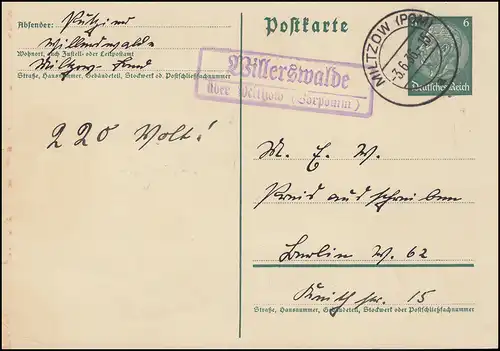 Absender: Putzier
Willerswalde
Wohnort, auch Zustell- oder Leitpostamt
Miltzow - Land
Straße, Hausnummer, Gebäudeteil, Stockwerk od. Postschließfachnummer
Postkarte
Willerswalde
über Miltzow (Vorpomm)
MILTZOW (POM)
6
Deutsches Reich
220 Volt!
M. E. W.
Preisausschreiben
Berlin W. 62
Keithstr. 15
Straße, Hausnummer, Gebäudeteil, Stockwerk oder Postschließfachnummer